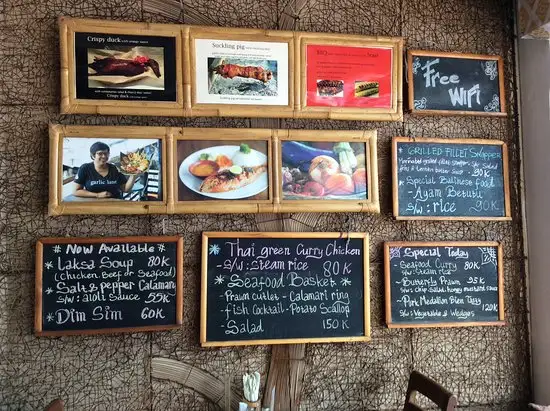 Crispy duck with orange sauce
Crispy duck
Suckling pig
BBQ
Free
WiFi
garlic lane
* GRILLED FILLET SNAPPER
Marinated grilled fillet snapper
& Lemon butter sauce 90K
* Special Balinese food
- Ayam Betutu
s/w: rice 80K
* Now Available *
* Laksa Soup 80K
(Chicken, Beef or Seafood)
* Salt & pepper Calamari
s/w: aioli sauce 55K
* Dim Sim 60K
Thai green Curry Chicken
- s/w: Steam rice 80K
* Seafood Basket
- Prawn cutlet - Calamari ring
fish Cocktail - Potato Scallop
- Salad 150K
* Special Today *
- Seafood Curry 80K
s/w: Steam rice
- Butterfly Prawn 95K
s/w: chip, Salad, honey mustard sauce
- Pork Medallion Blue Tassy 120K
s/w: Vegetable & Wedges